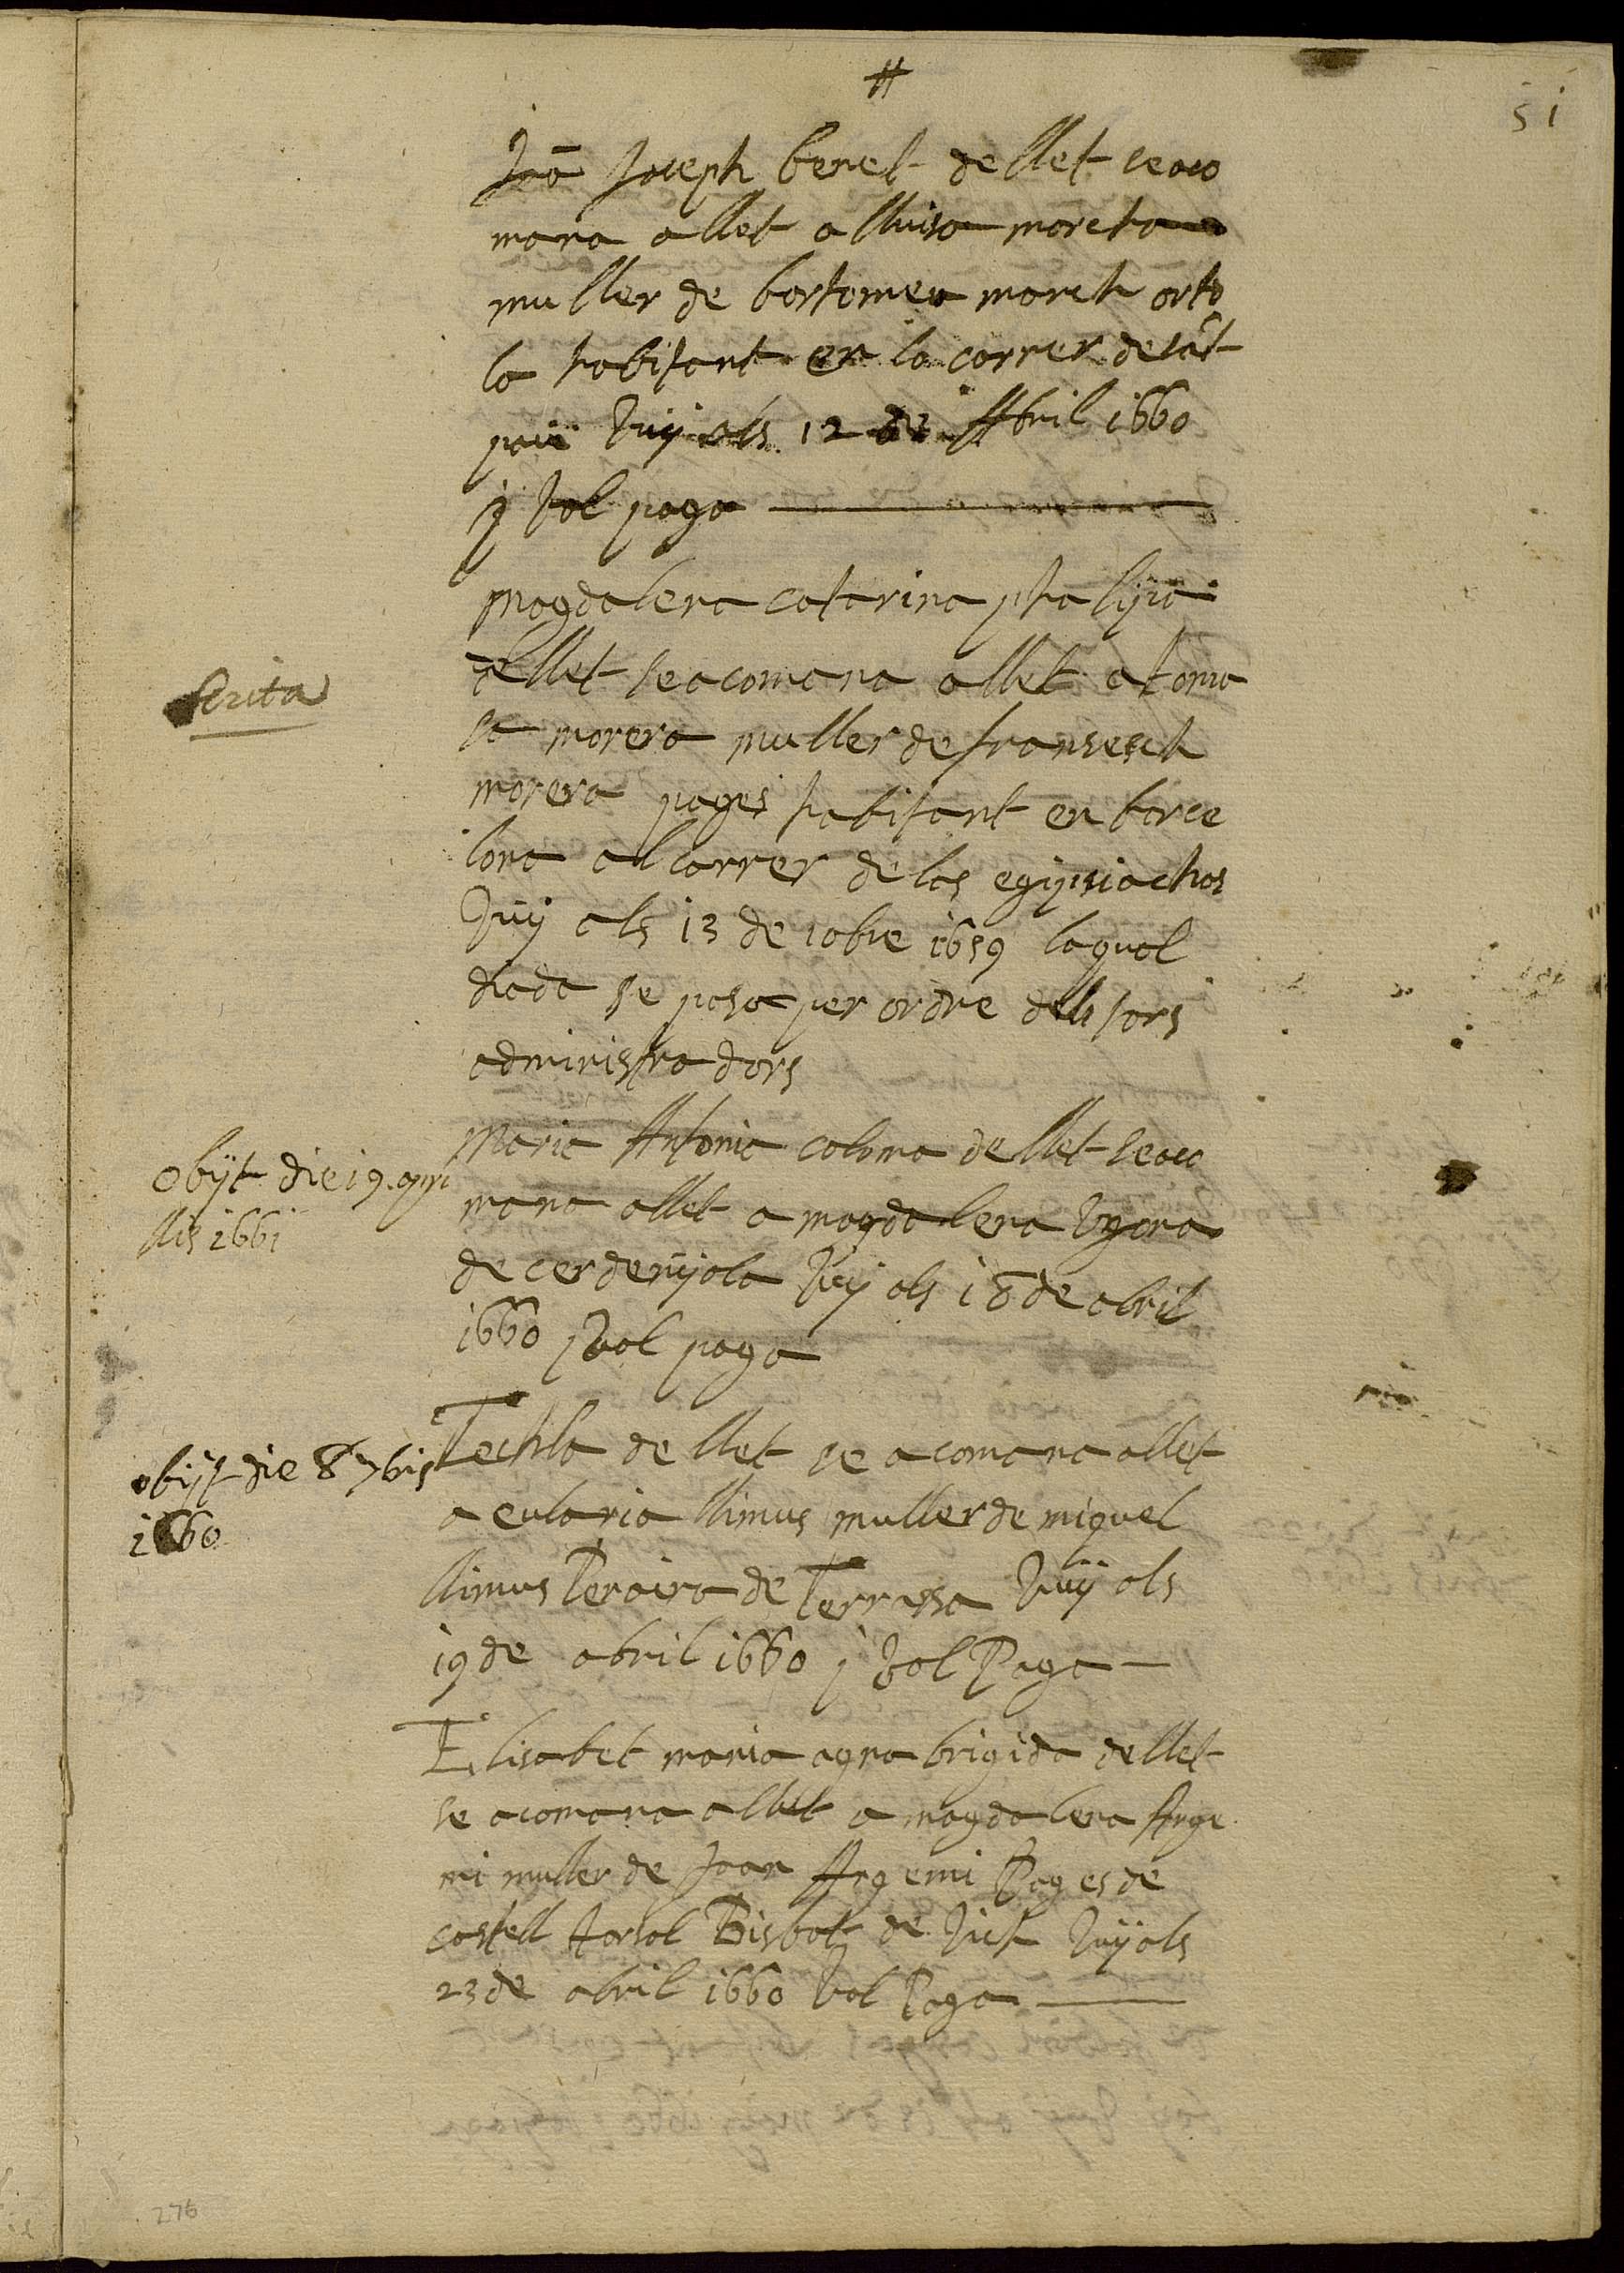 #
51
Joã Joseph benet de llet seaco
mana a llet a lluisa marcha
muller de bortomeu march orto
la habitant en lo carrer de sãt
pau Vuy als 12 de Abril 1660
y vol paga
Magdalena catarina
de llet se acomana a llet a toma
sa morera muller de fransesch
morera pages habitant en barce
lona al carrer de las egipsiachas
Vuy als 13 de 10bre 1659 laqual
diada se posa per ordre dels sors
administradors
Scrita
Maria Antonia coloma de llet seaco
mana a llet a magdalena
de cerdenyola Vuy als 18 de abril
1660 y vol paga
Obijt die 19. apri
llis 1661
Techla de llet se acomana a llet
a eularia llimus muller de miquel
llimus Peraire de Terrassa Vuy als
19 de abril 1660 y vol Paga
obijt die 8 7bis
1660
Elisabet maria agna brigida de llet
se acomana a llet a magdalena Arge
mi muller de Joan Argemi Pages de
castell tersol Bisbat de Vich Vuy als
23 de abril 1660 vol Paga
276